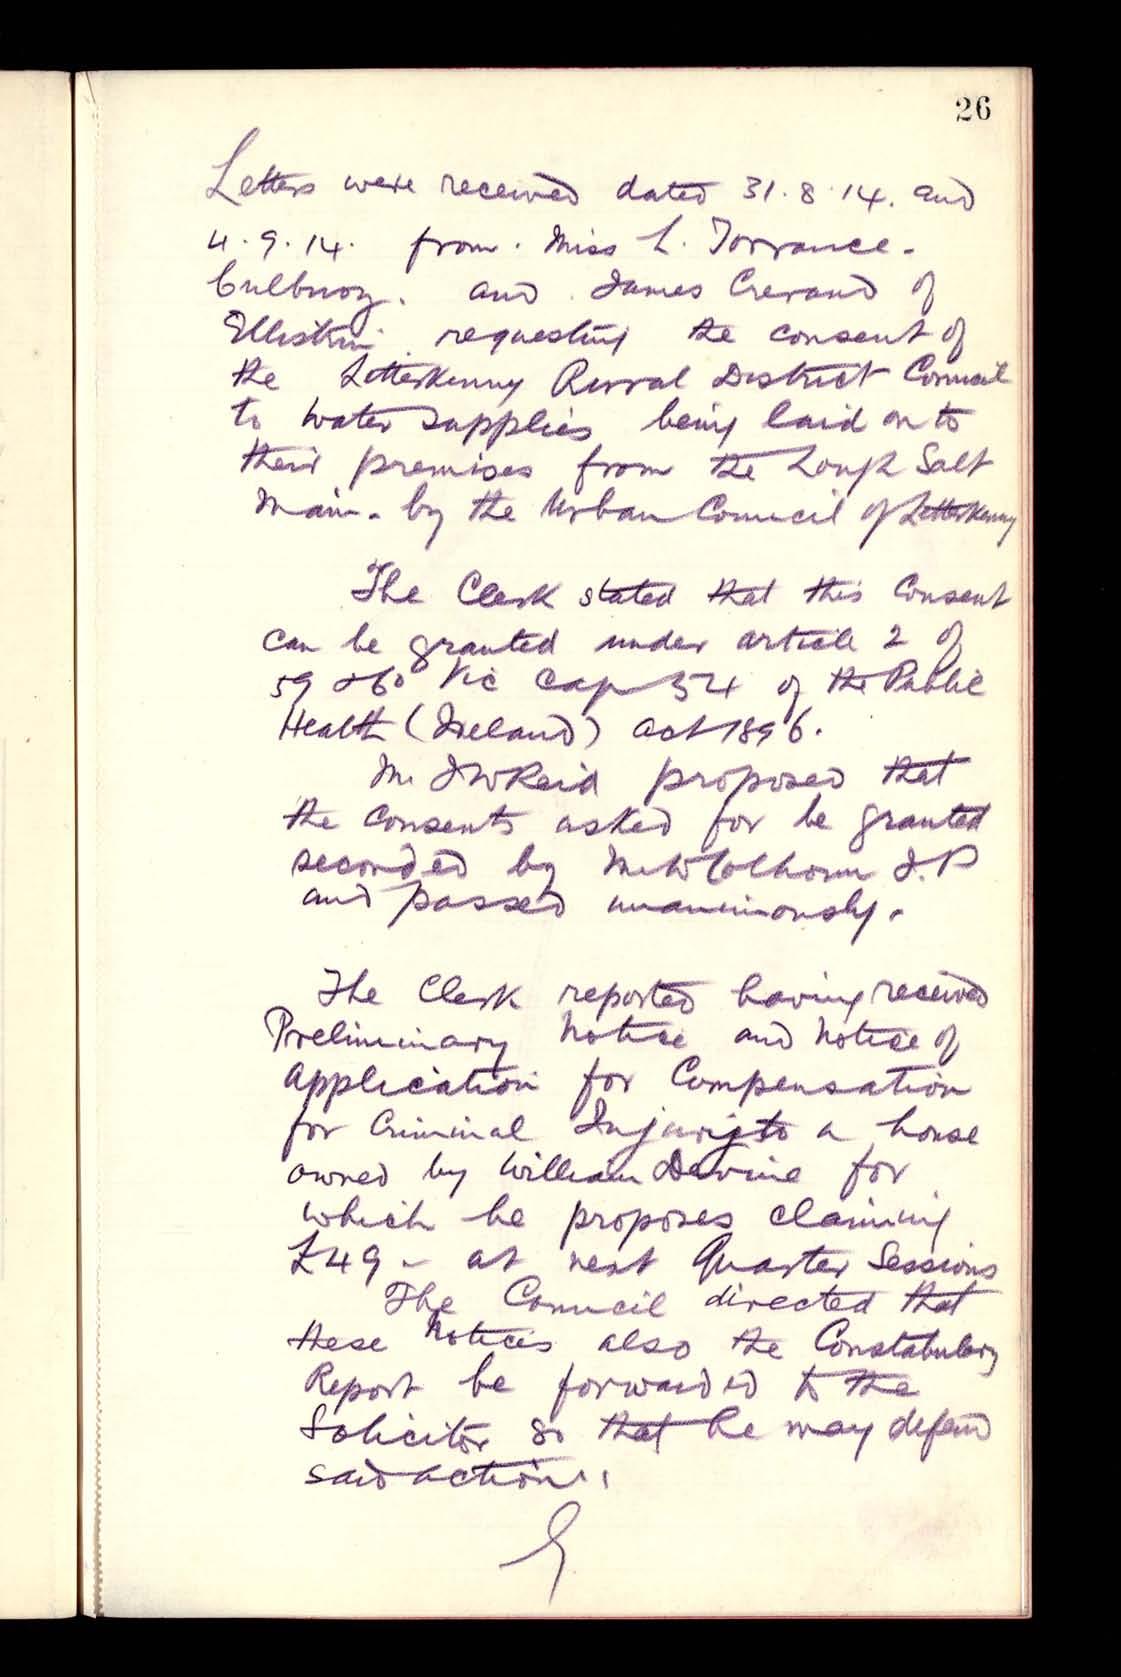 26
Letters were received dated 31.8.14. and
4.9.14. from. Miss L. Torrance.
Culbuoy. and James Crerand of
Ellistrin requesting the consent of
the Letterkenny Rural District Council
to Water Supplies being laid on to
their premises from the Lough Salt
Main. by the Urban Council of Letterkenny
The Clerk stated that this Consent
can be granted under article 2 of
59 & 60 Vic Cap 54 of the Public
Health (Ireland) Act 1896.
Mr J W Reid proposed that
the consents asked for be granted
seconded by Mr W Colhoun J.P
and passed unanimously.
The Clerk reported having received
Preliminary Notice and Notice of
Application for Compensation
for Criminal Injury to a house
owned by William Devine for
which he proposes claiming
£49 - at next Quarter Sessions
The Council directed that
these Notices also the Constabulary
Report be forwarded to the
Solicitor so that he may defend
said action.